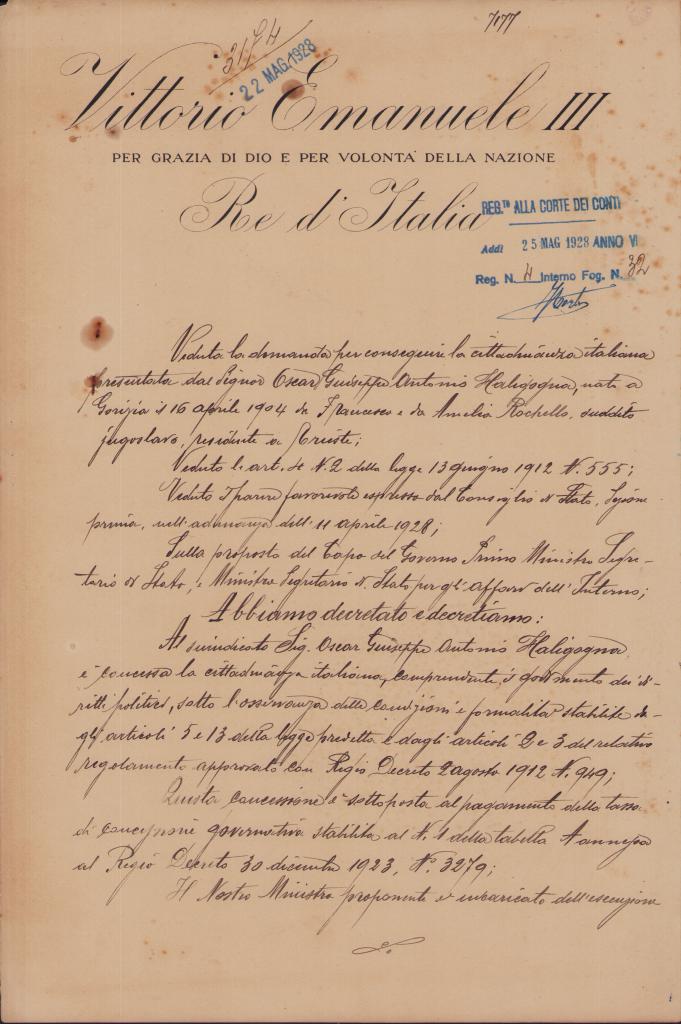 7177
3174
22 MAG. 1928
Vittorio Emanuele III
PER GRAZIA DI DIO E PER VOLONTÀ DELLA NAZIONE
Re d'Italia
REG.TO ALLA CORTE DEI CONTI
Addì 25 MAG 1928 ANNO VI
Reg. N. 4 Interno Fog. N. 32
Veduta la domanda per conseguire la cittadinanza italiana
presentata dal Signor Oscar Giuseppe Antonio Haligogna, nato a
Gorizia il 16 aprile 1904 da Francesco e da Amelia Rochello, suddito
jugoslavo, residente a Trieste;
Veduto l'art. 4 N. 2 della legge 13 giugno 1912 N. 555;
Veduto il parere favorevole espresso dal Consiglio di Stato, Sezione
prima, nell'adunanza dell'11 aprile 1928;
Sulla proposta del Capo del Governo Primo Ministro Segre-
tario di Stato, e Ministro Segretario di Stato per gli affari dell'Interno;
Abbiamo decretato e decretiamo:
Al suindicato Sig. Oscar Giuseppe Antonio Haligogna
è concessa la cittadinanza italiana, comprendente il godimento dei di-
ritti politici, sotto l'osservanza delle condizioni e formalità stabilite da-
gli articoli 5 e 13 della legge predetta e dagli articoli 2 e 3 del relativo
regolamento approvato con Regio Decreto 2 agosto 1912 N. 949;
Questa concessione è sottoposta al pagamento della tassa
di concessione governativa stabilita al N. 1 della tabella A annessa
al Regio Decreto 30 dicembre 1923, N. 3279;
Il Nostro Ministro proponente è incaricato dell'esecuzione